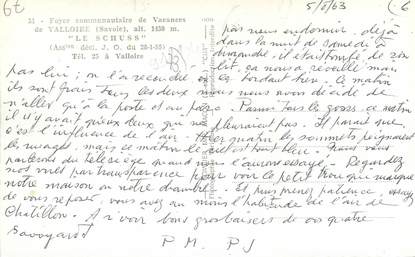 6t
51 - Foyer communautaire de Vacances
de VALLOIRE (Savoie), alt. 1450 m.
"LE SCHUSS"
(Assᵒⁿ déc. J. O. du 28-1-55)
Tél. 25 à Valloire
5/8/63
pas nous endormir. déjà
dans la nuit de samedi à
dimanche, il était tombé de son
lit, ça nous a réveillé mais
pas lui ; on l'a recouché en le bordant bien. Ce matin
ils sont frais tous les deux mais nous avons décidé de
n'aller qu'à la poste et au parc. Parmi tous les gosses, ce matin
il n'y avait qu'eux deux qui ne pleuraient pas. Il paraît que
c'est l'influence de l'air. Hier matin les sommets peignaient
les nuages, mais ce matin le ciel est tout bleu. Nous vous
parlerons du télésiège quand nous l'aurons essayé. Regardez
nos vues par transparence pour voir le petit trou qui marque
notre maison ou notre chambre. Et puis prenez patience, essayez
de vous reposer, vous avez au moins l'habitude de l'air de
Châtillon. A revoir bons gros baisers de vos quatre
Savoyards
P M. P J